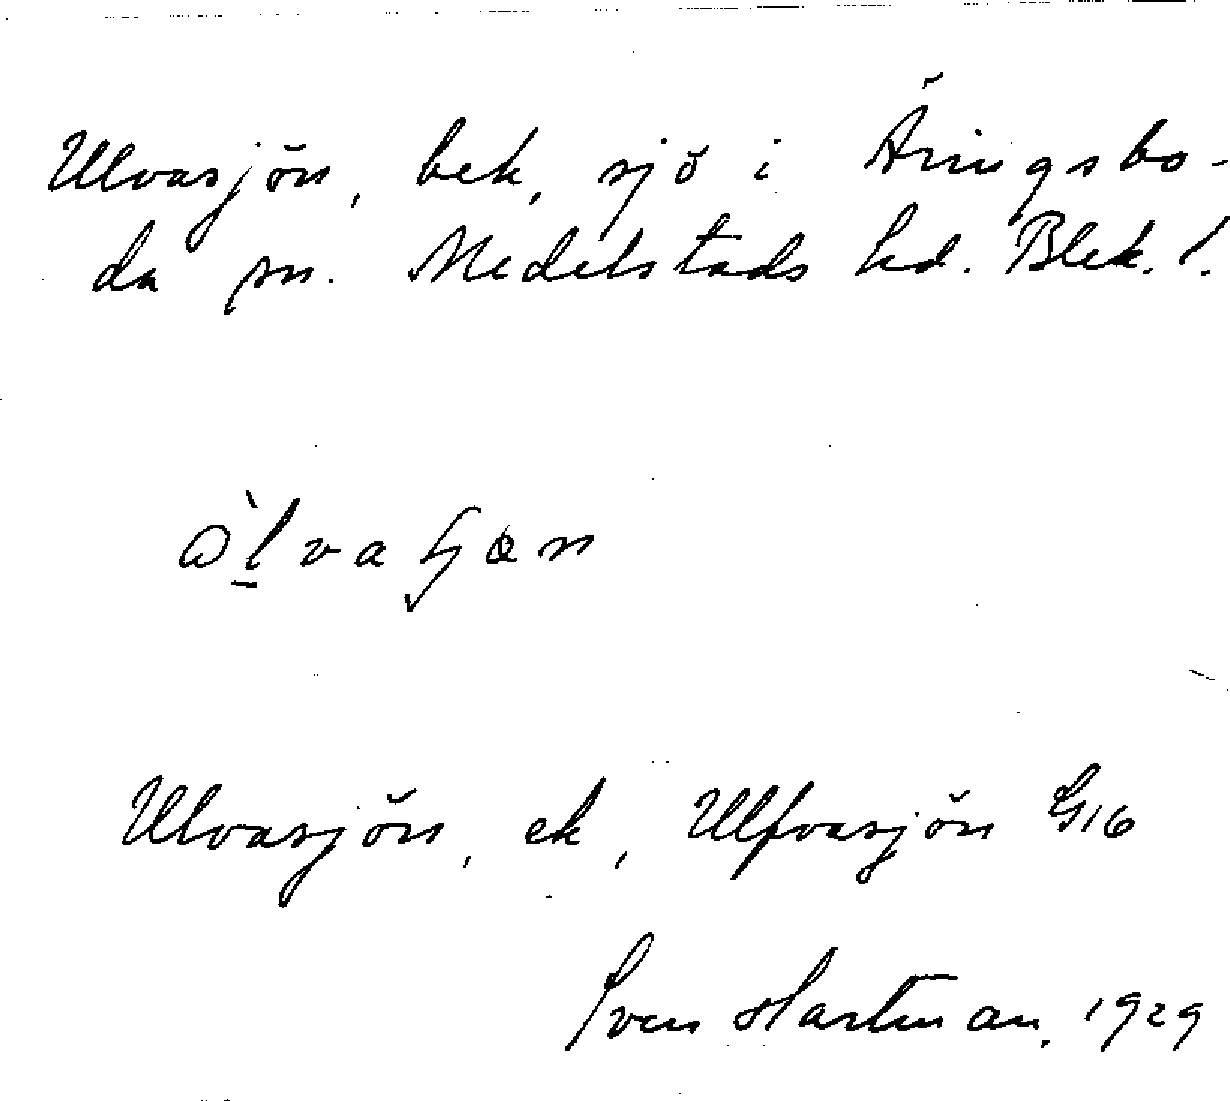 Ulvasjön, bek, sjö i Äringsbo-
da sn. Medelstads hd. Blek. l.
Ulvasjön, ek, Ulfvasjön G16
Sven Hartman, 1929